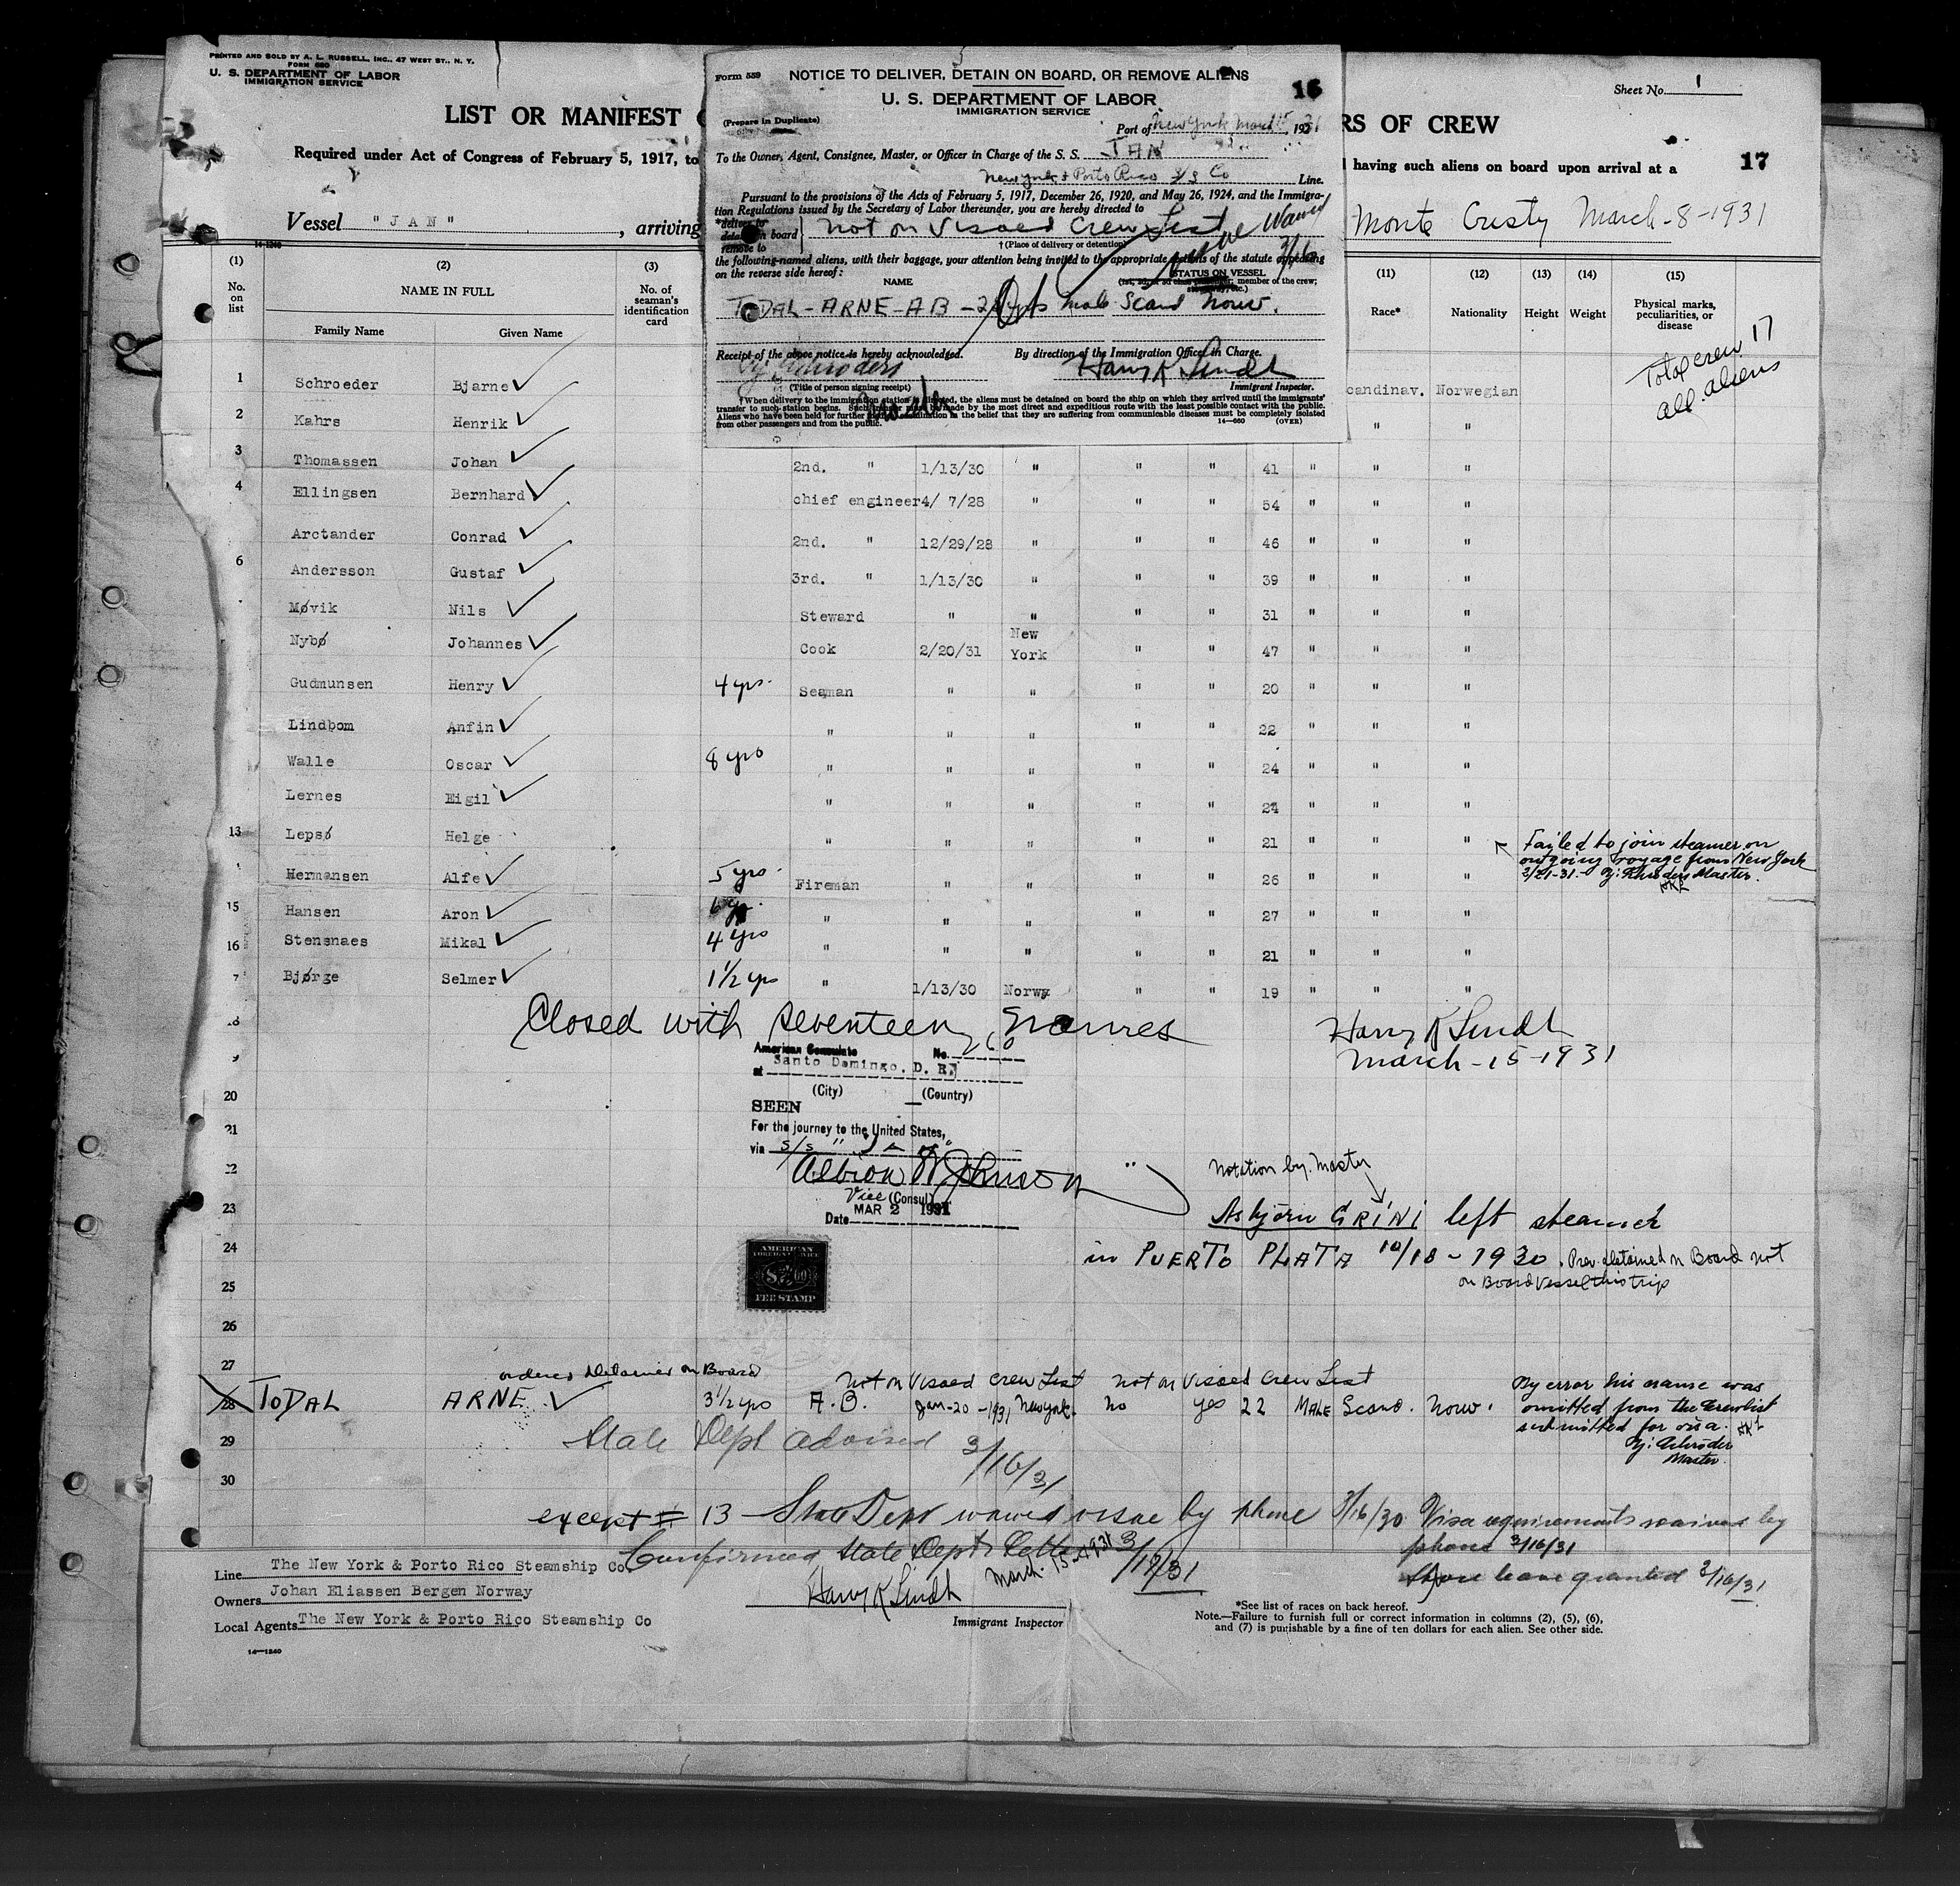 PRINTED AND SOLD BY A. L. RUSSELL, INC., 47 WEST ST., N. Y.
FORM 680
U. S. DEPARTMENT OF LABOR
IMMIGRATION SERVICE
Sheet No. 1
LIST OR MANIFEST
RS OF CREW
Required under Act of Congress of February 5, 1917, to
having such aliens on board upon arrival at a
17
Vessel "JAN", arriving
Monte Cristy March-8-1931
14-1240
Form 559
NOTICE TO DELIVER, DETAIN ON BOARD, OR REMOVE ALIENS
16
U. S. DEPARTMENT OF LABOR
IMMIGRATION SERVICE
(Prepare in Duplicate)
Port of New York March 15, 1931
To the Owner, Agent, Consignee, Master, or Officer in Charge of the S. S. JAN
New York & Porto Rico S/S Co Line.
Pursuant to the provisions of the Acts of February 5, 1917, December 26, 1920, and May 26, 1924, and the Immigra-
tion Regulations issued by the Secretary of Labor thereunder, you are hereby directed to
*deliver to
detain on board
remove to
not on Visaed Crew List
Waived
3/16
†(Place of delivery or detention)
the following-named aliens, with their baggage, your attention being invited to the appropriate sections of the statute appearing
on the reverse side hereof:
NAME
STATUS ON VESSEL
member of the crew;
TODAL - ARNE - AB - 22 yrs male Scand Norw.
Receipt of the above notice is hereby acknowledged.
By direction of the Immigration Officer in Charge.
Harry K Lindh
(Title of person signing receipt)
Immigrant Inspector.
†When delivery to the immigration station is directed, the aliens must be detained on board the ship on which they arrived until the immigrants'
transfer to such station begins. Such transfer must be made by the most direct and expeditious route with the least possible contact with the public.
Aliens who have been held for further examination in the belief that they are suffering from communicable diseases must be completely isolated
from other passengers and from the public.
14-660 (OVER)
(1) (2) (3) (11) (12) (13) (14) (15)
No. on list
NAME IN FULL
Family Name Given Name
No. of seaman's identification card
Race* Nationality Height Weight
Physical marks, peculiarities, or disease
Total crew 17
all aliens
1 Schroeder Bjarne candinav. Norwegian
2 Kahrs Henrik " "
3 Thomassen Johan 2nd. " 1/13/30 " " " 41 " " "
4 Ellingsen Bernhard chief engineer 4/ 7/28 " " " 54 " " "
Arctander Conrad 2nd. " 12/29/28 " " " 46 " " "
6 Andersson Gustaf 3rd. " 1/13/30 " " " 39 " " "
Møvik Nils Steward " " " " 31 " " "
Nybø Johannes Cook 2/20/31 New York " " 47 " " "
Gudmunsen Henry 4 yrs. Seaman " " " " 20 " " "
Lindbom Anfin " " " " " 22 " " "
Walle Oscar 8 yrs " " " " " 24 " " "
Lernes Eigil " " " " " 24 " " "
13 Lepsø Helge " " " " " 21 " " "
Failed to join steamer on
outgoing voyage from New York
2/21-31. Master.
Hermansen Alfe 5 yrs. Fireman " " " " 26 " " "
15 Hansen Aron 6 yr. " " " " " 27 " " "
16 Stensnaes Mikal 4 yrs " " " " " 21 " " "
7 Bjørge Selmer 1½ yrs " 1/13/30 Norwy " " 19 " " "
18 Closed with seventeen names
Harry K Lindh
March-15-1931
9
American Consulate No. 260
at Santo Domingo, D. R.
(City) (Country)
20
SEEN
21
For the journey to the United States,
via S/S "Jan"
22
Albion W Johnson
Vice (Consul)
Date MAR 2 1931
Notation by Master
23
Asbjörn GRINI left steamer
24
in PUERTO PLATA 10/18-1930. Prev. detained on Board not
on Board vessel this trip
AMERICAN
FOREIGN SERVICE
FEE STAMP
25
26
27
ordered Detained on Board
not on Visaed Crew List not on Visaed Crew List
28 TODAL ARNE 3½ yrs A.B. Jan-20-1931 New York. no yes 22 MALE Scand. Norw.
By error his name was
omitted from the Crewlist
submitted for visa.
Master.
29
State Dept advised 3/16/31
30
except # 13 - State Dept waived visae by phone 3/16/30
Visa requirements waived by
phone 3/16/31
Confirmed State Dept Letter 3/17/31
Shore leave granted 3/16/31
Line The New York & Porto Rico Steamship Co.
Owners Johan Eliassen Bergen Norway
Local Agents The New York & Porto Rico Steamship Co
Harry K Lindh March 15-1931
Immigrant Inspector
*See list of races on back hereof.
Note.—Failure to furnish full or correct information in columns (2), (5), (6),
and (7) is punishable by a fine of ten dollars for each alien. See other side.
14-1240